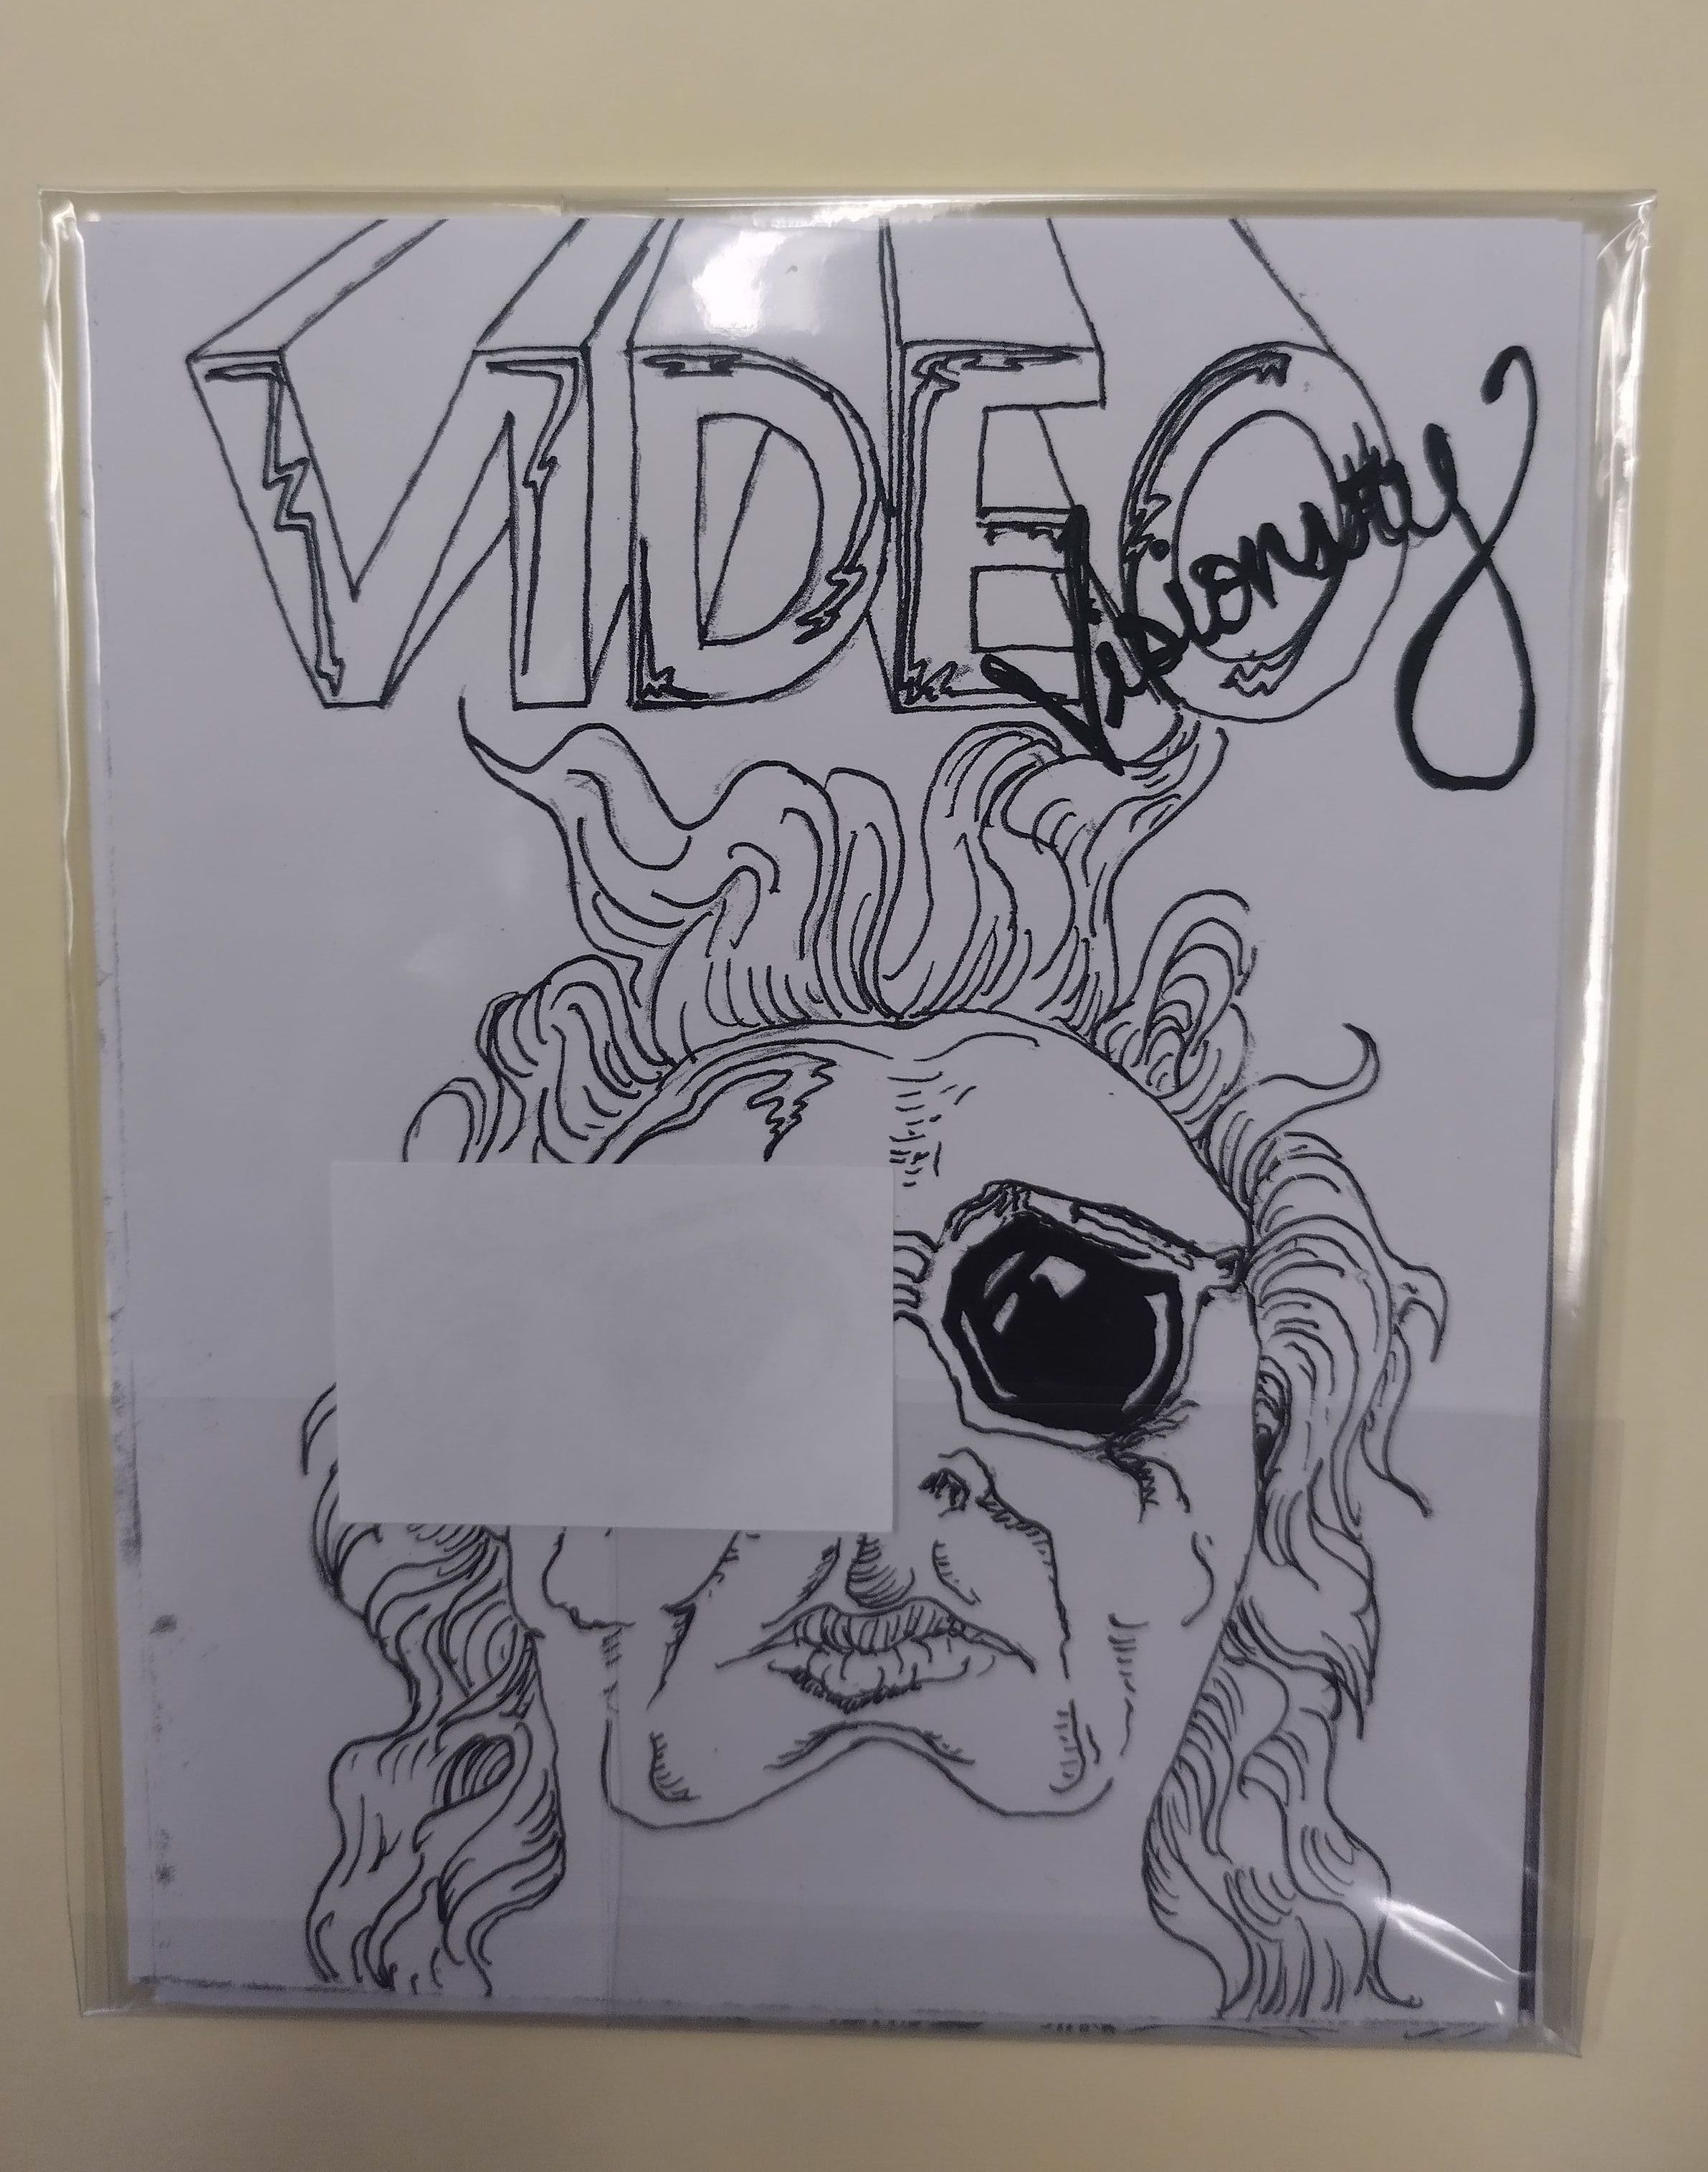 VIDEO
Visionary